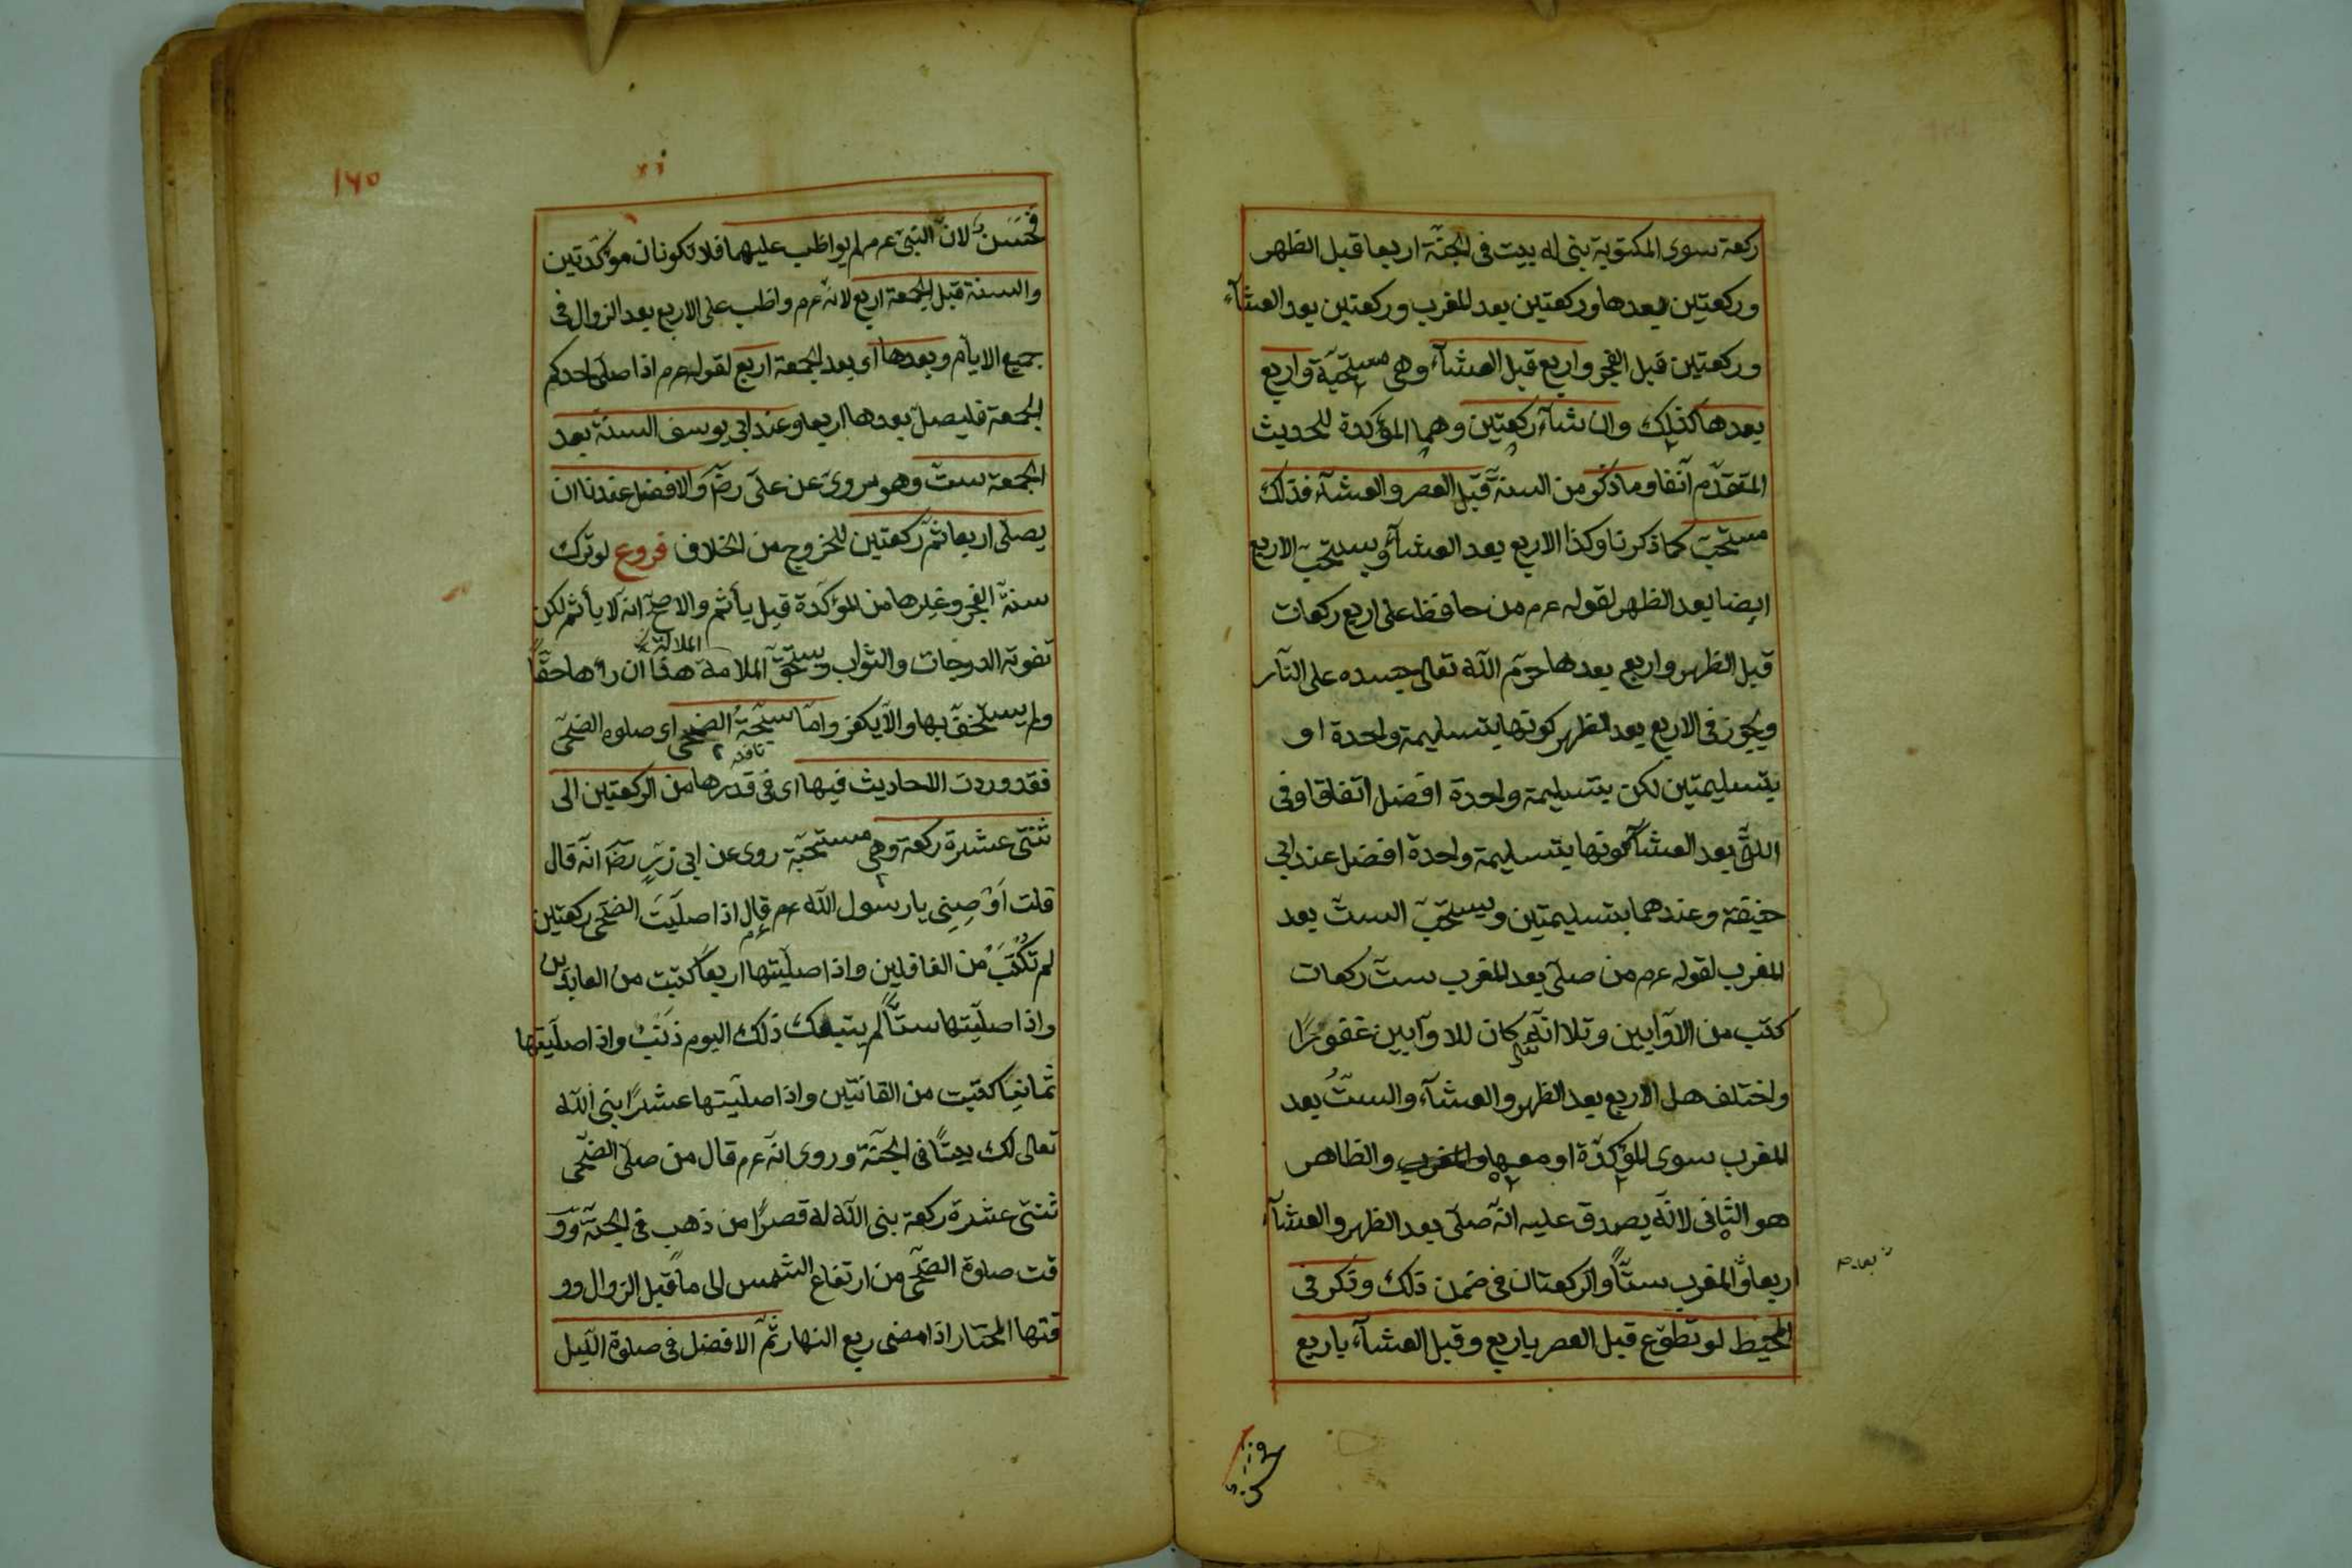 ركعة سوى المكتوبة بنى له بيت فى الجنّة اربعا قبل الظهر
وركعتين بعدها وركعتين بعد المغرب وركعتين بعد العشآء
وركعتين قبل الفجر واربع قبل العشآء وهى مستحبّة واربع
بعدها كذلك وان شآء ركعتين وهما المؤكدة للحديث
المتقدّم آنفا وما ذكر من السنة قبل العصر والعشآء فذلك
مستحبّ كما ذكرنا وكذا الاربع بعد العشآء ويستحبّ الاربع
ايضا بعد الظهر لقوله عرم من حافظ على اربع ركعات
قبل الظهر واربع بعدها حرّم اللّه تعالى جسده على النّار
ويجوز فى الاربع بعد الظهر كونها بتسليمة واحدة او
بتسليمتين لكن بتسليمة واحدة افضل اتفاقا وفى
بعد العشآء كونها بتسليمة واحدة افضل عند ابى
حنيفة وعندهما بتسليمتين ويستحبّ الستّ بعد
المغرب لقوله عرم من صلّى بعد المغرب ستّ ركعات
كتب من الاوّابين وتلا انّه كان للاوّابين غفورًا
واختلف هل الاربع بعد الظهر والعشآء والستُّ بعد
المغرب سوى المؤكدّة او معها والمغرب والظاهر
هو الثانى لانّه يصدق عليه انّه صلّى بعد الظهر والعشآء
اربعا والمغرب ستًّا والركعتان فى ضمن ذلك وذكر فى
المحيط لو تطوّع قبل العصر باربع وقبل العشآء باربع
بعد صح
فحسن
١٦٥
فحَسَن لانّ النبىّ عرم لم يواظب عليهما فلا تكونان مؤكّدتين
والسنة قبل الجمعة اربع لانّه عرم واظب على الاربع بعد الزوال فى
جميع الايّام وبعدها اى بعد الجمعة اربع لقوله عرم اذا صلّى احدكم
الجمعة فليصلّ بعدها اربعا وعند ابى يوسف السنّة بعد
الجمعة ستّ وهو مروىّ عن علىّ رضّ والافضل عندنا ان
يصلّى اربعا ثمّ ركعتين للخروج من الخلاف فروع لو ترك
سنة الفجر وغيرها من المؤكّدة قيل يأثم والاصحّ انّه لا يأثم لكن
تفوته الدرجات والثواب ويستحقّ الملامة هذا ان رأها حقّا
ولم يستخفّ بها والّا يكفر وامّا سبحةُ الضحى اى صلوة الضحى
نافلة
فقد وردت الاحاديث فيها اى فى قدرها من الركعتين الى
ثنتى عشرة ركعة وهى مستحبّة روى عن ابى ذرّ رضّ انّه قال
قلت اَوْصِنِى يا رسول اللّه عرم قال اذا صلّيتَ الضحى ركعتين
لم تُكْتَبْ من الغافلين واذا صلّيتها اربعًا كتبت من العابدين
واذا صلّيتها ستًّا لم يتبعك ذلك اليوم ذَنْبٌ واذا صلّيتها
ثمانيًا كتبت من القانتين واذا صلّيتها عشرًا بنى اللّه
تعالى لك بيتًا فى الجنّة وروى انّه عرم قال من صلّى الضّحى
ثنتى عشرة ركعة بنى اللّه له قصرًا من ذهب فى الجنّة وو
قت صلوة الضّحى من ارتفاع الشمس الى ما قبل الزوال وو
قتها المختار اذا مضى ربع النهار ثمّ الافضل فى صلوة اللّيل